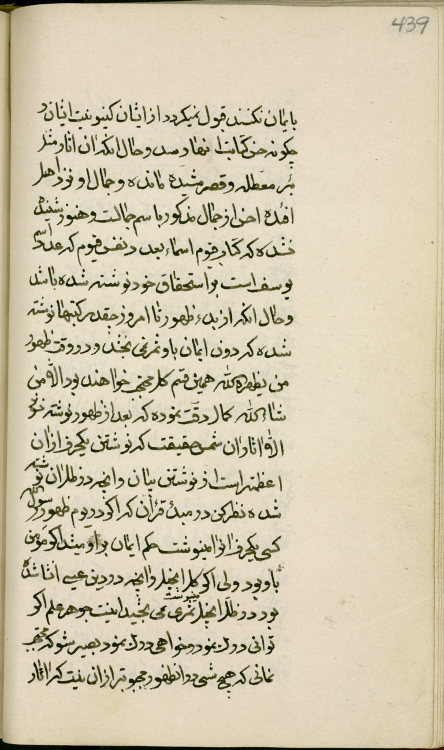 439
بایمان نکنند قبول نمیگردد از ایشان کینونیت ایشان و
چگونه حق کتاب انها رسد و حال انکه ان اثار مثل
بئر معطله و قصر مشید مانده و جمال او نزد اهل
افئده احق از جمال مذکور باسم جمالت و هنوز شنیده
نشده که کتاب قیوم اسماء بعدد نفس قیوم که عدد اسم
یوسف است بر استحقاق خود نوشته شده باشد
و حال انکه از بدء ظهور تا امروز چقدر کتبها نوشته
شده که دون ایمان باو ثمری نبخشد و در وقت ظهور
من یظهره الله همین قسم کل محتجب خواهند بود الا من
شاء الله کمال دقت نموده که بعد از ظهور نوشته نشود
الا اثار ان شمس حقیقت که نوشتن یکحرف از ان
اعظمتر است از نوشتن بیان و انچه در ظل ان نوشته
شده نظر کن در مبدء قران که اگر در یوم ظهور رسول الله
کسی یکحرف از انرا مینوشت حکم ایمان بر او میشد اگر مؤمن
باو بود ولی اگر کل انجیل و انچه در دین عیسی انشا شده
بود در ظل انجیل مینوشت ثمری نمی بخشید اینست جوهر علم اگر
توانی درک نمود و خواهی درک نمود بصیر شو که محتجب
نمانی که هیچ شئی در ان ظهور محبوبتر از ان نیست که اثار